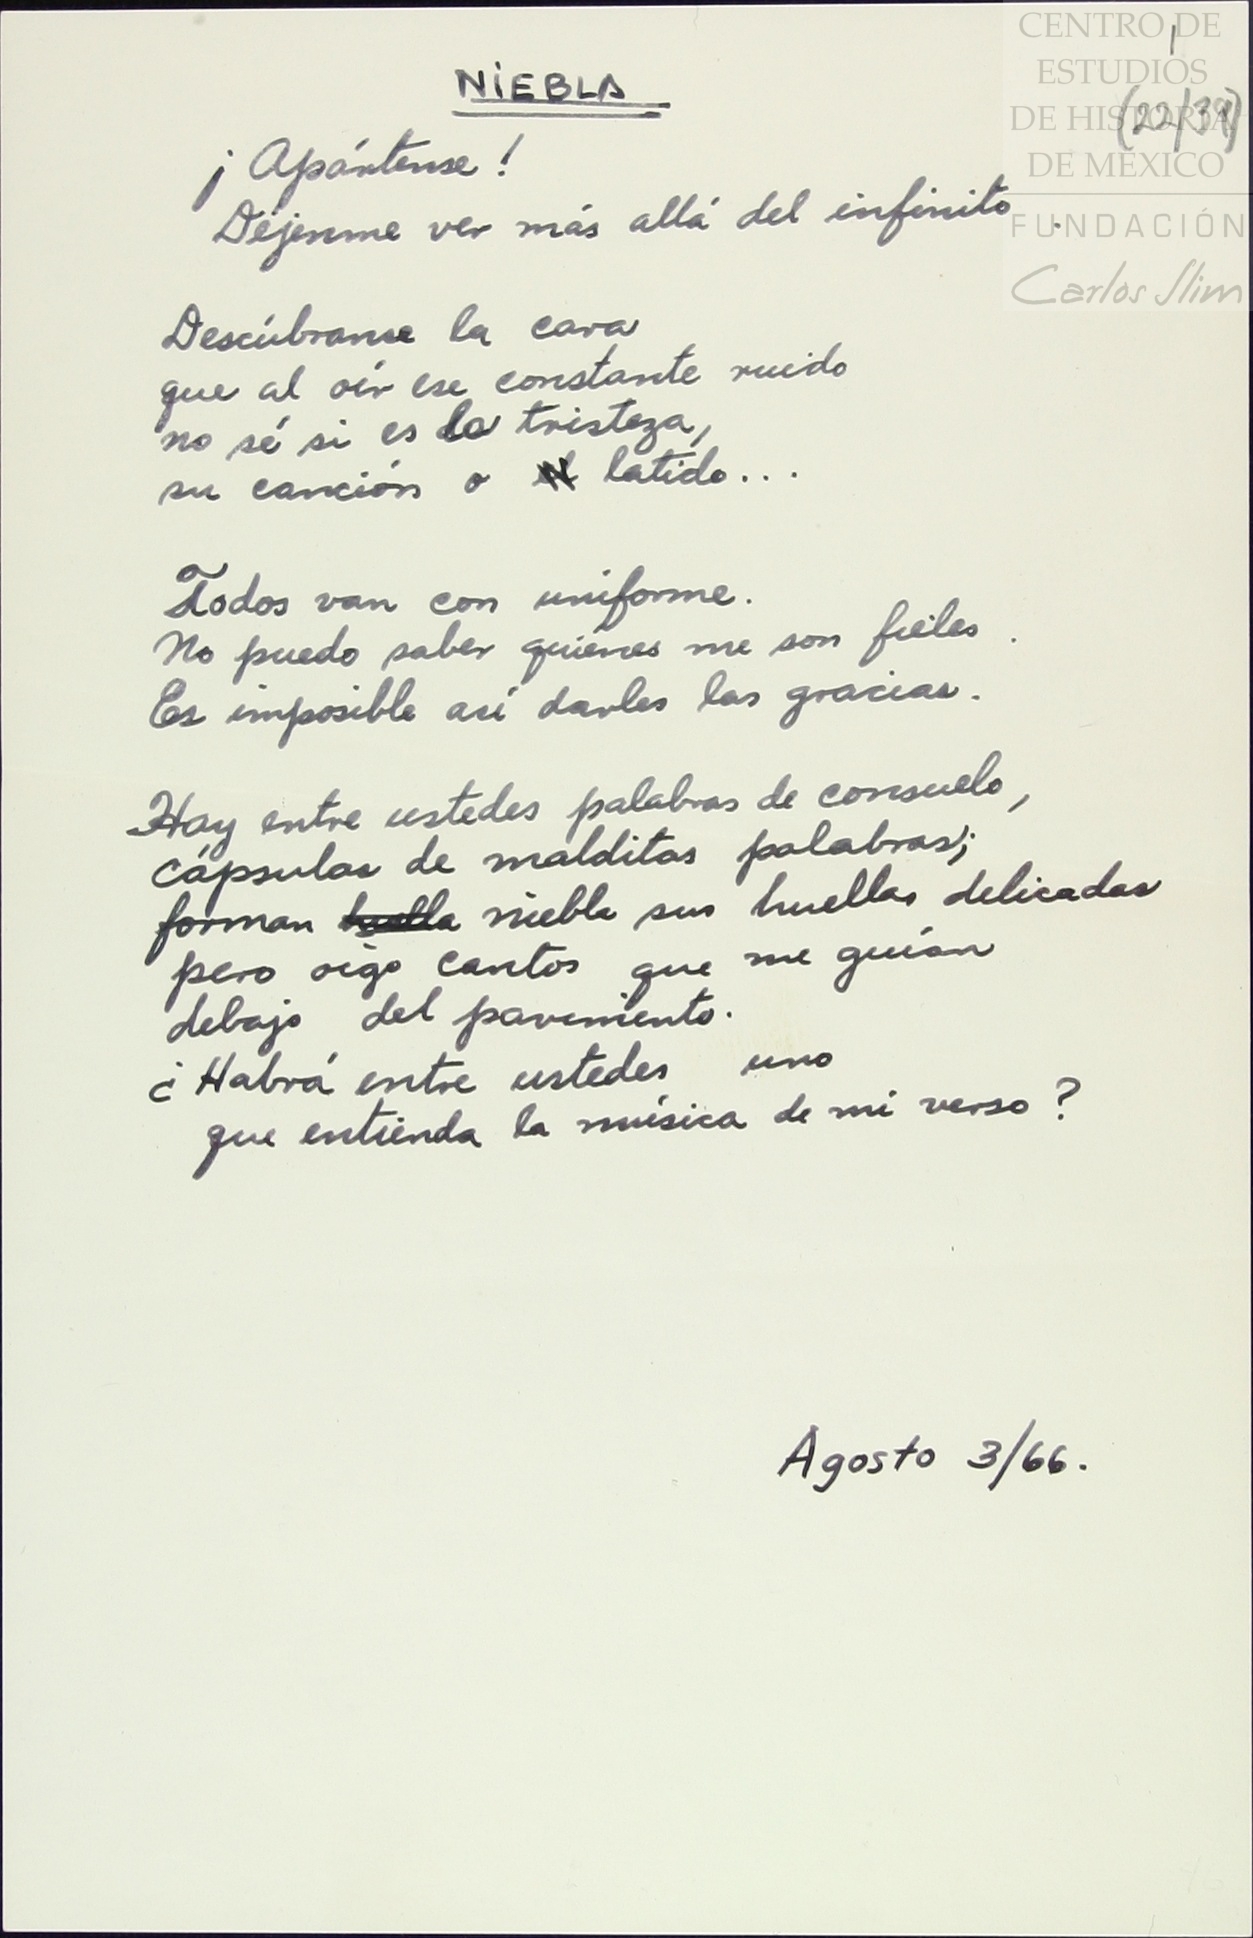 CENTRO DE
ESTUDIOS
DE HISTORIA
DE MÉXICO
FUNDACIÓN
Carlos Slim
1
(22/39)
NIEBLA
¡Apártense!
Déjenme ver más allá del infinito.
Descúbranse la cara
que al oír ese constante ruido
no sé si es la tristeza,
su canción o latido...
Todos van con uniforme.
No puedo saber quiénes me son fieles.
Es imposible así darles las gracias.
Hay entre ustedes palabras de consuelo,
cápsulas de malditas palabras;
forman niebla sus huellas delicadas
pero oigo cantos que me guían
debajo del pavimento.
¿Habrá entre ustedes uno
que entienda la música de mi verso?
Agosto 3/66.